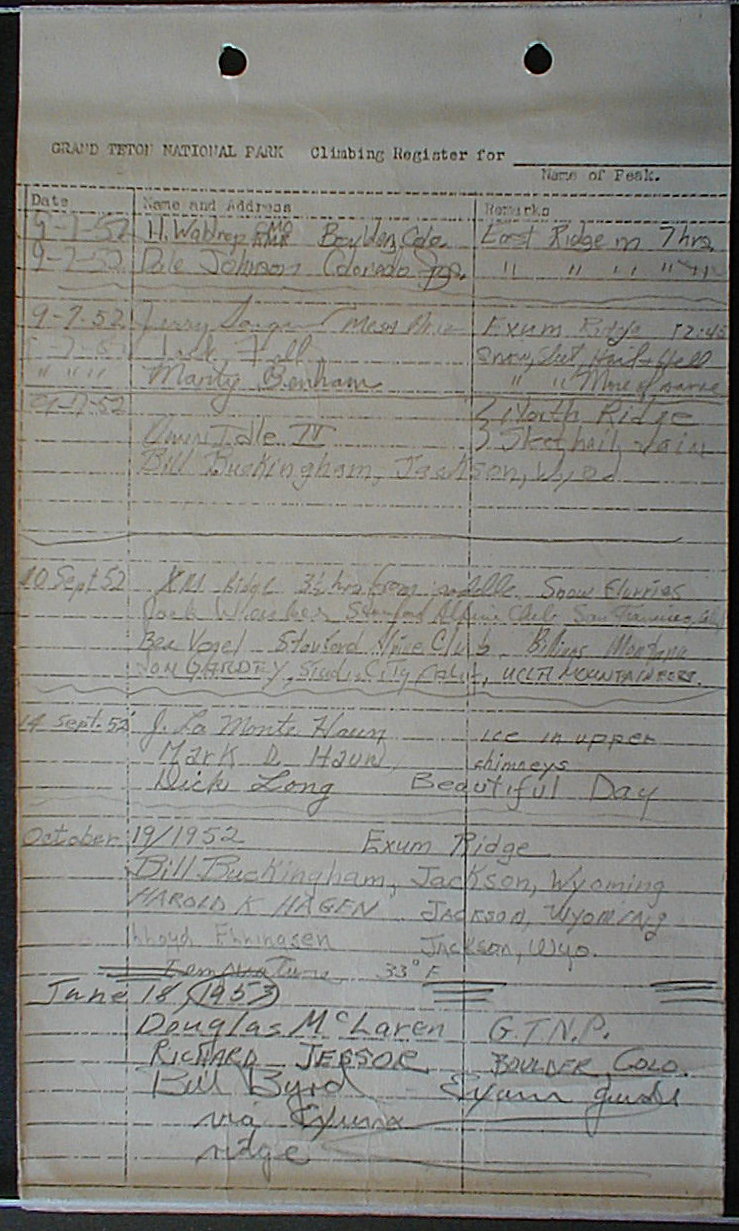 GRAND TETON NATIONAL PARK Climbing Register for
Name of Peak.
Date Name and Address Remarks
9-7-52 H. Waldrop Boulder, Colo. East Ridge in 7 hrs.
9-7-52 Dale Johnson Colorado Spgs. " " " " "
9-7-52 Jerry Exum Ridge 12:45
Jack Snow, Sleet Hail & Hell
" " " " Marity Benham " " More of same
9-7-52 North Ridge
IV hail, rain
Bill Buckingham, Jackson, Wyo
10 Sept 52 XM Ridge 3½ hrs from saddle. Snow Flurries
Jack Stanford Alpine Club San Francisco, Cal
Ben Vogel Stanford Alpine Club, Billings Montana
JON GARDEY, Studio City Calif, UCLA MOUNTAINEERS.
14 Sept. 52 J. La Monte Haun ice in upper
Mark D. Haun, chimneys
Dick Long Beautiful Day
October 19/1952 Exum Ridge
Bill Buckingham, Jackson, Wyoming
HAROLD K HAGEN JACKSON, WYOMING
Jackson, Wyo.
Temprature 33° F
June 18, (1953)
Douglas McLaren G.T.N.P.
RICHARD JESSOR BOULDER COLO.
Bill Byrd Exum guide
via Exum
ridge